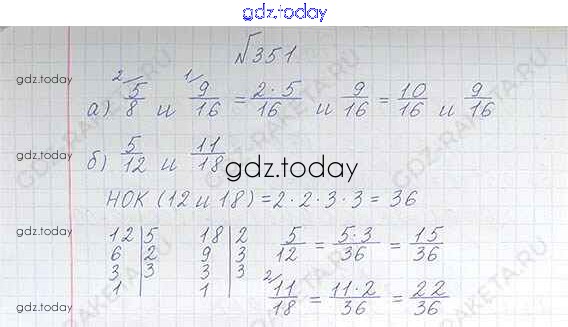 gdz.today
№351
gdz.today
а) 2/ 5/8 и 1/ 9/16 = 2·5/16 и 9/16 = 10/16 и 9/16
gdz.today
б) 5/12 и 11/18
gdz.today
gdz.today
НОК (12 и 18) = 2·2·3·3 = 36
gdz.today
12|5 18|2 5/12 = 5·3/36 = 15/36
6|2 9|3
3|3 3|3
1| 1| 2/ 11/18 = 11·2/36 = 22/36
gdz.today
GDZ-RAKETA.RU